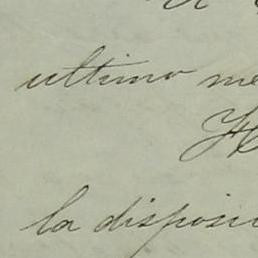 ultimo me
la disposi